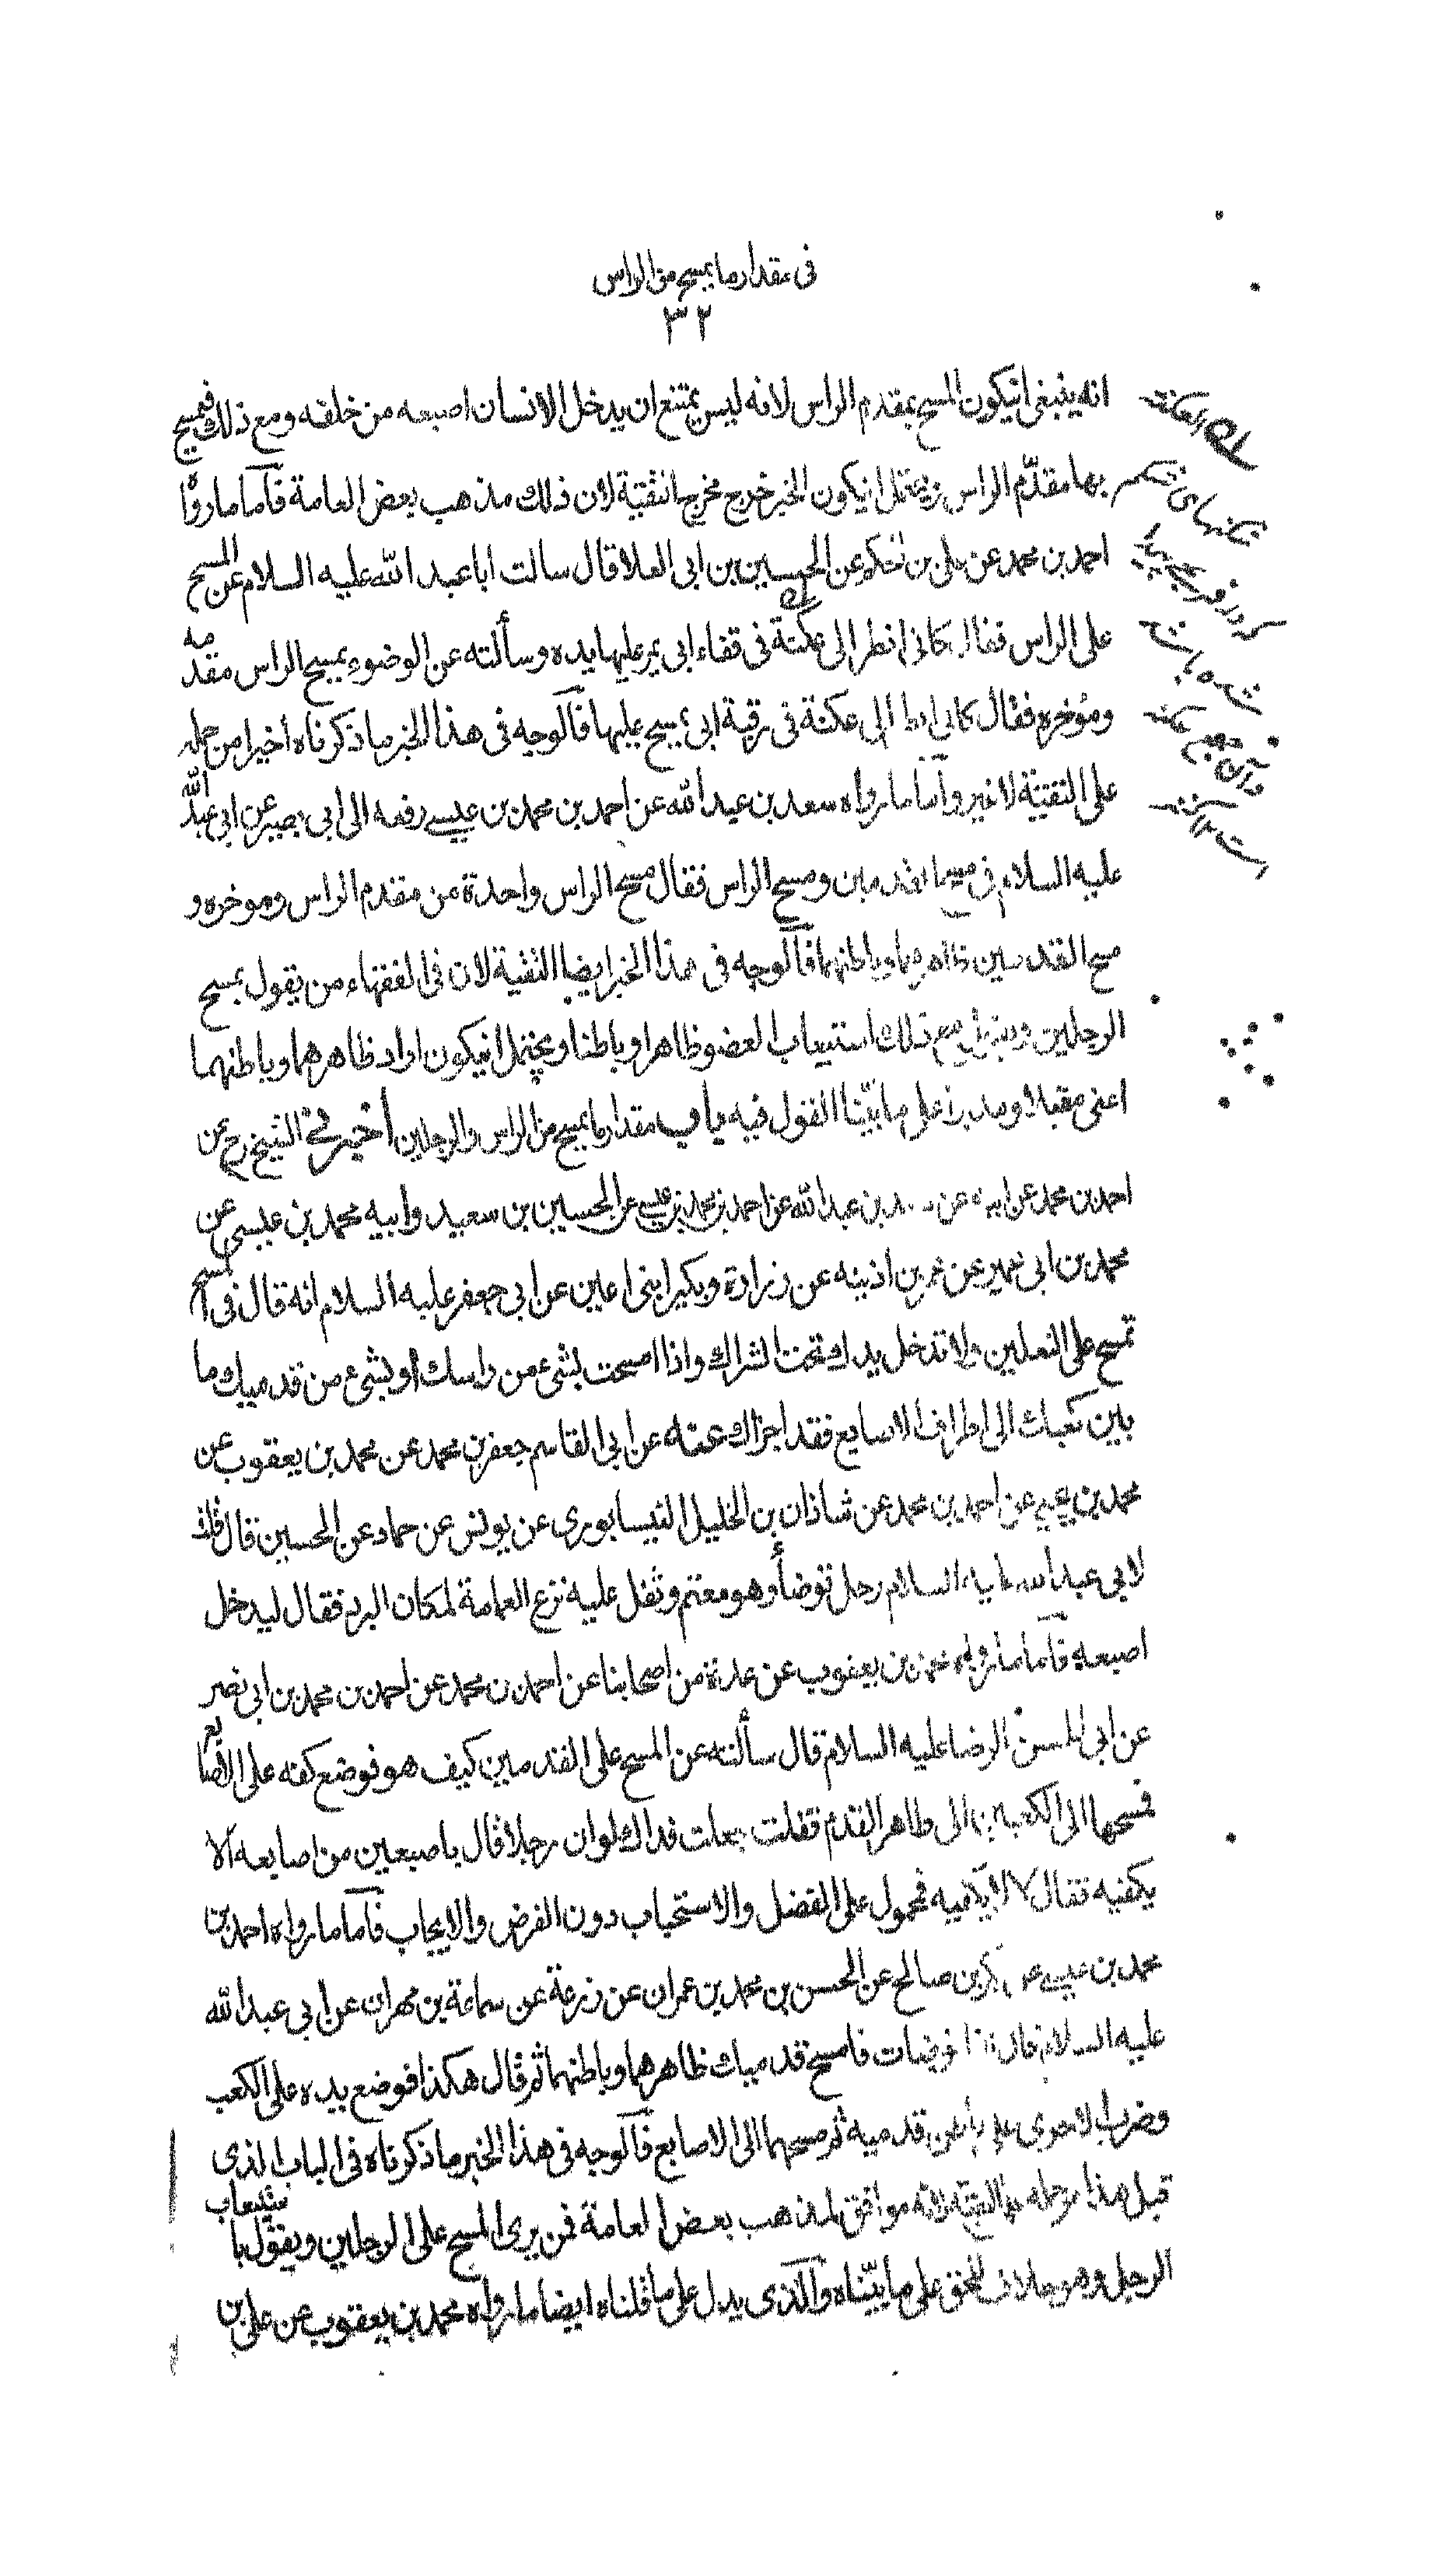 فى مقدار ما يمسح من الراس
٣٢
انه ينبغى انيكون المسح بمقدم الراس لانه ليس يمتنع ان يدخل الانسان اصبعه من خلفه ومع ذلك فيمسح
بها مقدّم الراس ويحتمل انيكون الخبر خرج مخرج التقيّة لان ذلك مذهب بعض العامة فاما ما رواه
احمد بن محمد عن على بن الحكم عن الحسين بن ابى العلا قال سالت ابا عبد الله عليه السلام عن المسح
على الراس فقال كانى انظر الى عكنة فى قفاء ابى يمر عليها يده وسألته عن الوضوء يمسح الراس مقدمه
ومؤخره فقال كانى انظر الى عكنة فى رقبة ابى يمسح عليها فالوجه فى هذا الخبر ما ذكرناه اخيرا من حمله
على التقيّة لا غير واما ما رواه سعد بن عبد الله عن احمد بن محمد بن عيسى رفعه الى ابى بصير عن ابى عبد الله
عليه السلام فى مسح القدمين ومسح الراس فقال مسح الراس واحدة من مقدم الراس وموخره و
مسح القدمين ظاهرهما وباطنهما فالوجه فى هذا الخبر ايضا التقية لان فى الفقهاء من يقول بمسح
الرجلين ويقول مع ذلك استيعاب العضو ظاهرا وباطنا ويحتمل انيكون اراد ظاهرهما وباطنهما
اعنى مقبلا ومدبرا على ما بيّنّا القول فيه باب مقدار ما يمسح من الراس والرجلين اخبرنى الشيخ رح عن
احمد بن محمد عن ابيه عن سعد بن عبد الله عن احمد بن محمد بن عيسى عن الحسين بن سعيد وابيه محمد بن عيسى عن
محمد بن ابى عمير عن عمر بن اذينه عن زرارة وبكير ابنى اعين عن ابى جعفر عليه السلام انه قال فى المسح
تمسح على النعلين ولا تدخل يدك تحت الشراك واذا امسحت بشىء من راسك او بشىء من قدميك ما
بين كعبك الى اطراف الاصابع فقد اجزاك عنه عن ابى القاسم جعفر بن محمد عن محمد بن يعقوب عن
محمد بن يحيى عن احمد بن محمد عن شاذان بن الخليل النيسابورى عن يونس عن حماد عن الحسين قال قلت
لابى عبد الله عليه السلام رجل توضأ وهو معتم وثقل عليه نزع العمامة لمكان البرد فقال ليدخل
اصبعه فاما ما رواه محمد بن يعقوب عن عدة من اصحابنا عن احمد بن محمد عن احمد بن محمد بن ابى نصر
عن ابى الحسن الرضا عليه السلام قال سألته عن المسح على القدمين كيف هو فوضع كفه على الاصابع
فمسحها الى الكعبين الى ظاهر القدم فقلت جعلت فداك لو ان رجلا قال باصبعين من اصابعه الا
يكفيه فقال لا لا يكفيه فمحمول على الفضل والاستحباب دون الفرض والايجاب فاما ما رواه احمد بن
محمد بن عيسى عن بكر بن صالح عن الحسن بن محمد بن عمران عن زرعة عن سماعة بن مهران عن ابى عبد الله
عليه السلام قال اذا توضات فامسح قدميك ظاهرهما وباطنهما ثم قال هكذا فوضع يده على الكعب
وضرب الاخرى على باطن قدميه ثم مسحهما الى الاصابع فالوجه فى هذا الخبر ما ذكرناه فى الباب الذى
قبل هذا من حمله على التقية لانه موافق لمذهب بعض العامة فمن يرى المسح على الرجلين ويقول باستيعاب
الرجل وهو خلاف الحق على ما بيّنّاه والذى يدل على ما قلناه ايضا ما رواه محمد بن يعقوب عن على بن